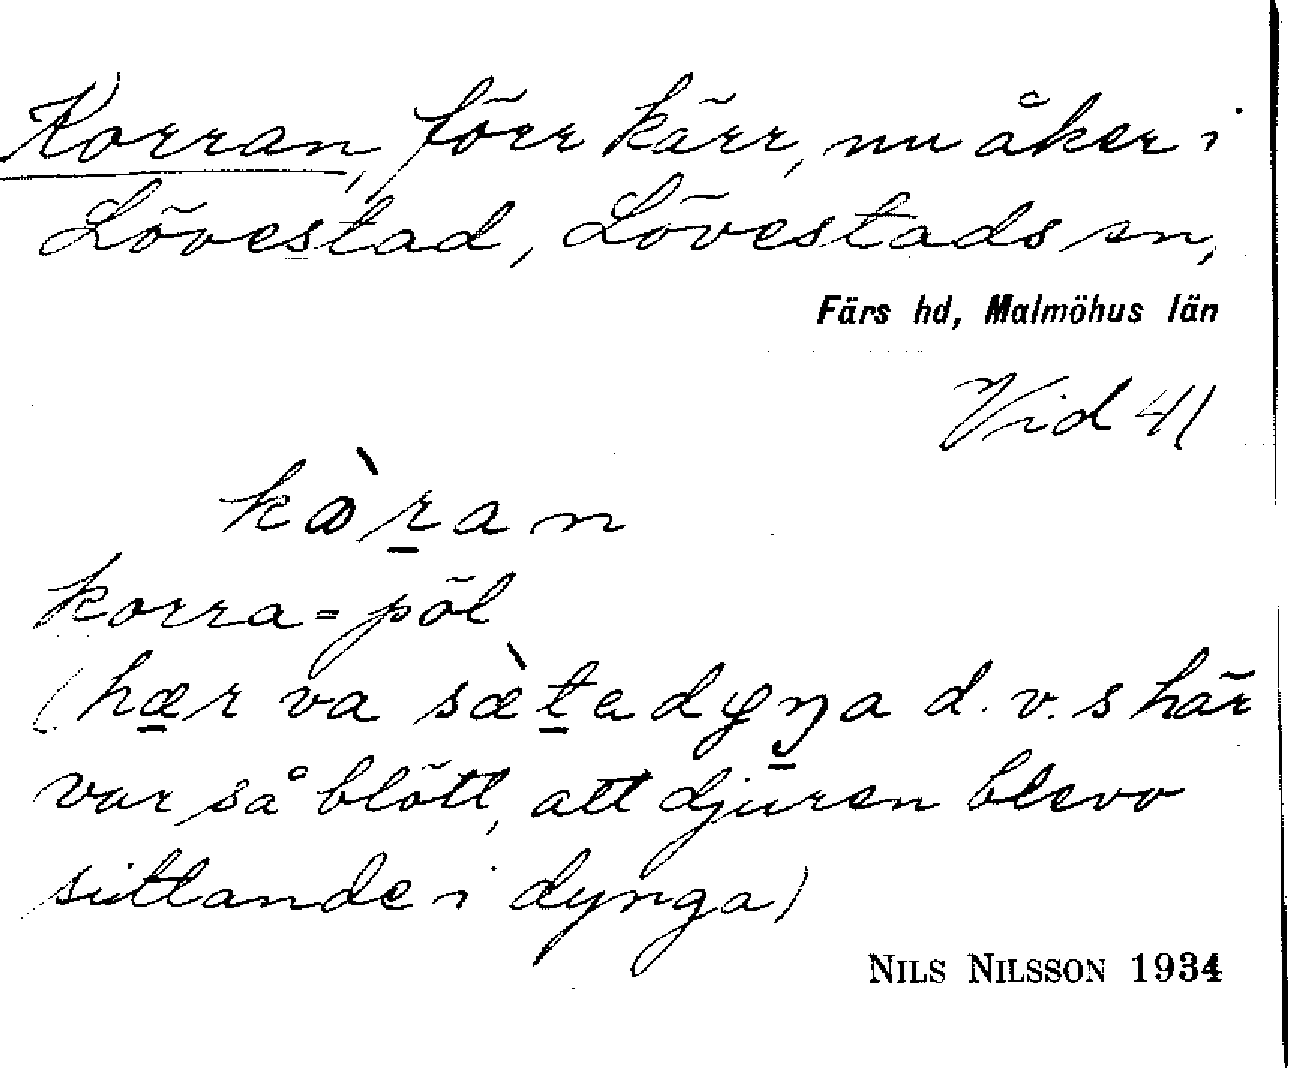 Korran, förr kärr, nu åker i
Lövestad, Lövestads sn,
Färs hd, Malmöhus län
Vid 41
kòran
korra = pöl
(hær va sæ̀tadyŋa d.v.s här
var så blött, att djuren blevo
sittande i dynga)
NILS NILSSON 1934